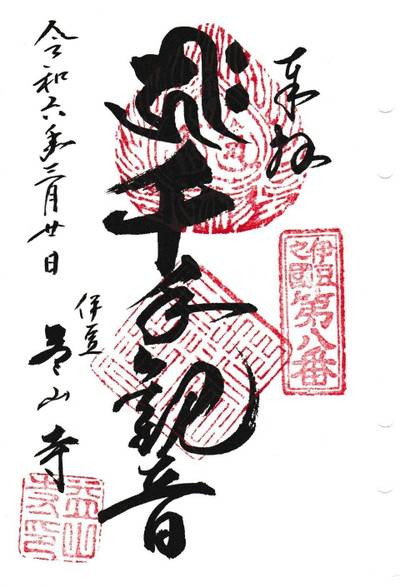 奉拝
伊豆之國
第八番
ह्रीः
千手観音
令和六年三月廿日
伊豆
益山寺